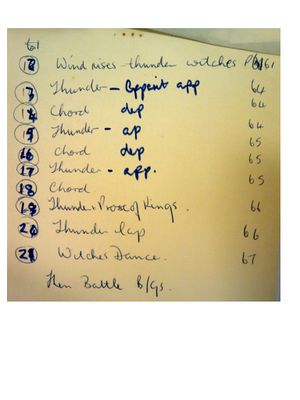 61
12 Wind rises thunder witches P 61
13 Thunder - Appint app 64
14 Chord dep 64
15 Thunder - ap 64
16 Chord dep 65
17 Thunder - app. 65
18 Chord 65
19 Thunder Proc of Kings. 66
20 Thunder Clap 66
21 Witches Dance. 67
Then Battle B/Gs.